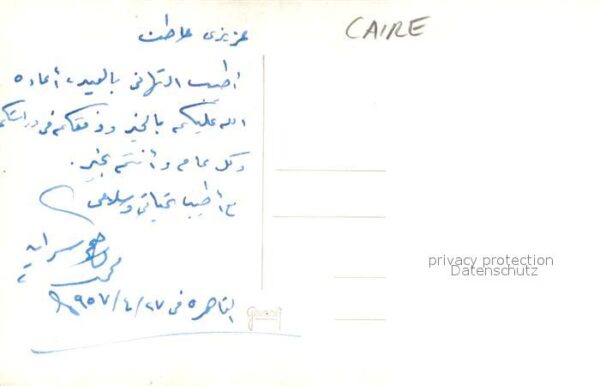 CAIRE
عزيزى عاطف
أطيب التهانى بالعيد، أعاده
الله عليكم بالخير ووفقكم فى دراستكم
وكل عام وأنتم بخير.
مع أطيب تحياتى وسلامى
محمد
القاهرة فى ٢٧/٤/١٩٥٧
privacy protection
Datenschutz